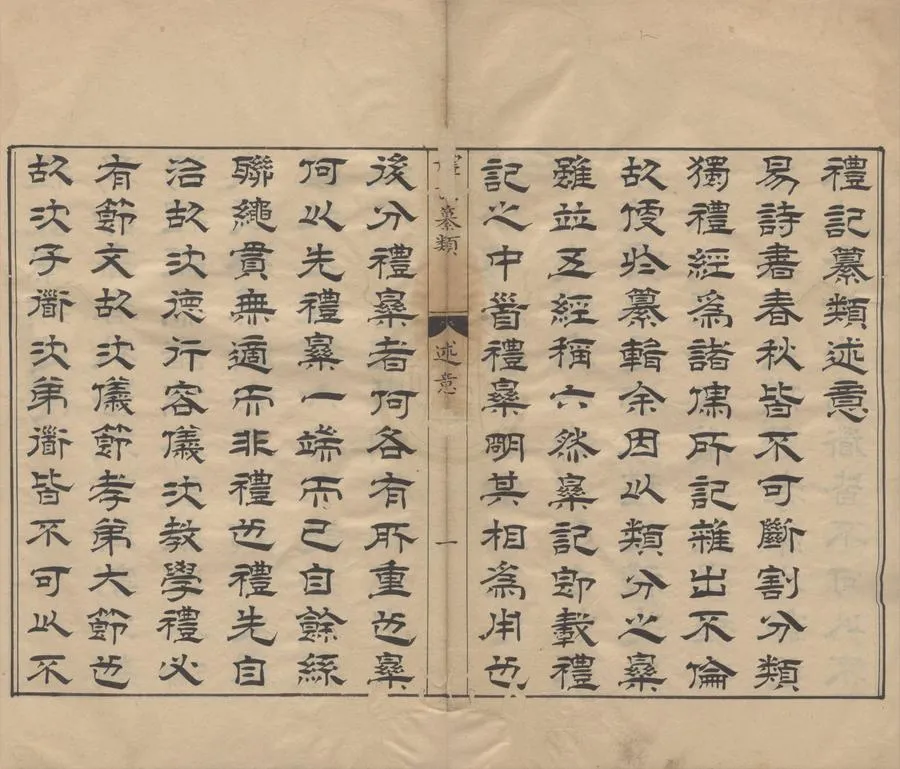 禮記纂類述意
易詩書春秋皆不可斷割分類
獨禮經爲諸儒所記雜出不倫
故便於纂輯余因以類分之樂
雖並五經稱六然樂記即載禮
記之中首禮樂明其相爲用也
纂類
述意
一
後分禮樂者何各有所重也樂
何以先禮樂一端而已自餘絲
聯繩貫無適而非禮也禮先自
治故次德行容儀次教學禮必
有節文故次儀節孝弟大節也
故次子衟次弟衟皆不可以不